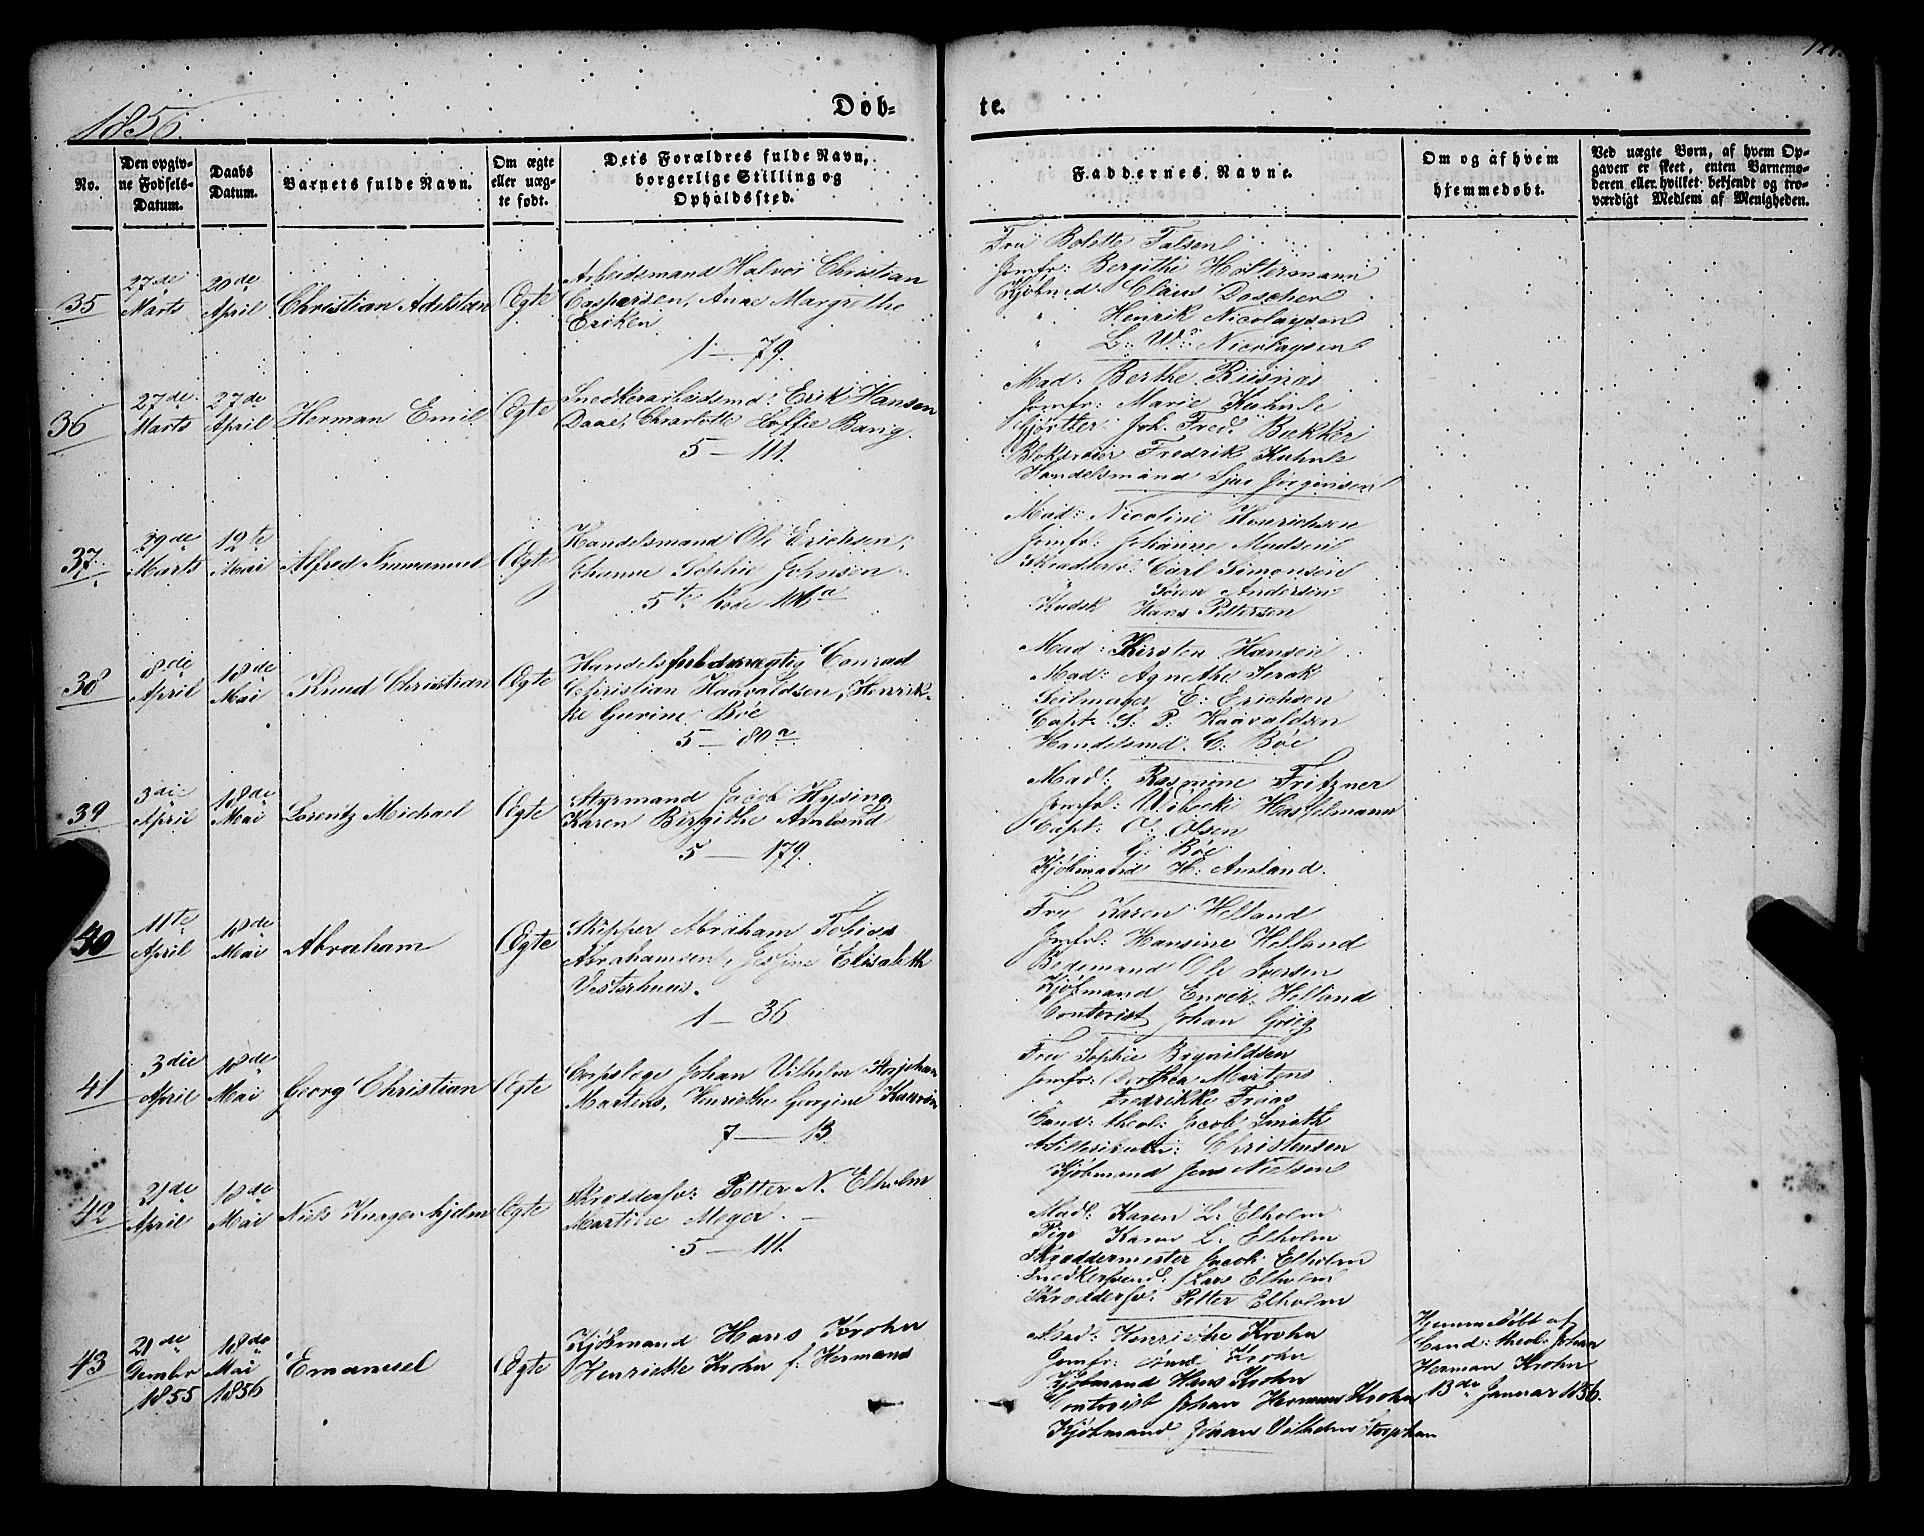 1856.
Døb-
te.
No.
Den opgiv-
ne Fødsels-
Datum.
Daabs
Datum.
Barnets fulde Navn.
Om ægte
eller uæg-
te født.
Dets Forældres fulde Navn,
borgerlige Stilling og
Opholdssted.
Faddernes Navne.
Om og af hvem
hjemmedøbt.
Ved uægte Børn, af hvem Op-
gaven er skeet, enten Barnemo-
deren eller hvilket bekjendt og tro-
værdigt Medlem af Menigheden.
35
27de
Marts
20de
April
Christian Adelsten
Ægte
Arbeidsmand Halvor Christian
Caspersen, Anne Margrethe
Eriksen
1 — 79.
Fru Bolette Falsen
Jomfr: Bergithe Holtermann
Kjøbmd: Claus Doscher
" Henrik Nicolaysen
" L: W: Nicolaysen
36
27de
Marts
27de
April
Herman Emil
Ægte
Snedkerarbeidsmd: Erik Hansen
Daae, Charlotte Soffie Bang.
5 — 111.
Mad: Berthe Riisnæs
Jomfr: Marie Kuhnle
Joh. Fred. Bækker
Fredrik Kuhnle
Handelsmand Sjur Jørgensen
37.
29de
Marts
12te
Mai
Alfred Immanuel
Ægte
Handelsmand Ole Erichsen,
Johanne Sophie Johnsen
5te Rode 106a
Mad: Nicoline Henrichsen
Jomfr: Johanne Madsen
Carl Simonsen
Søren Andersen
Kudsk Hans Pettersen
38
8de
April
18de
Mai
Knud Christian
Ægte
Handelsfuldmægtig Conrad
Christian Haavaldsen, Henrik-
ke Gurine Bøe
5 — 80a
Mad: Kirsten Hansen
Mad: Agnethe Serck
Seilmager E: Erichsen
Capt: S. P. Haavaldsen
Handelsmd. C: Bøe
39
3die
April
18de
Mai
Lorentz Michael
Ægte
Styrmand Jacob Hysing
Karen Birgithe Amland
5 — 179.
Mad: Rasmine Fritzner
Jomf: Wibecke Hasselmann
Capt: O: Olsen
" G: Bøe
Kjøbmand H: Amland.
40
11te
April
18de
Mai
Abraham
Ægte
Skipper Abraham Tobias
Abrahamsen, Jesine Elisabeth
Vesterhuus.
1 — 36
Fru Karen Helland
Jomf: Hansine Helland
Bedemand Ole Iversen
Kjøbmand Enock Helland
Contorist Johan Grieg
41
3die
April
18de
Mai
Georg Christian
Ægte
Corpslæge Johan Vilhelm Storjohan
Martens, Henriethe Georgine
7 — 13.
Fru Sophie Brynildsen
Jomfr: Dorthea Martens
" Fredrikke Fraas
Cand: theol: Jacob Smith
Christensen
Kjøbmand Jens Nielsen
42
21de
April
18de
Mai
Niels Knagenhjelm
Ægte
Skrædersv: Petter N. Elholm
Martine Meyer. —
5 — 111.
Madl: Karen L: Elholm
Pige Karen L: Elholm
Skræddermester Jacob Elholm
Snedkersvend: Lars Elholm
Skræddersv: Petter Elholm
43
21de
Decmbr
1855
18de
Mai
1856
Emanuel
Ægte
Kjøbmand Hans Krohn
Henriette Krohn f: Hermans
Mad: Henriethe Krohn
Jomfr: Krohn
Kjøbmand Hans Krohn
Contorist Johan Herman Krohn
Kjøbmand Johan Vilhelm Storjohan
Hjemmedøbt af
Cand: theol: Johan
Herman Krohn
13de Januar 1856.